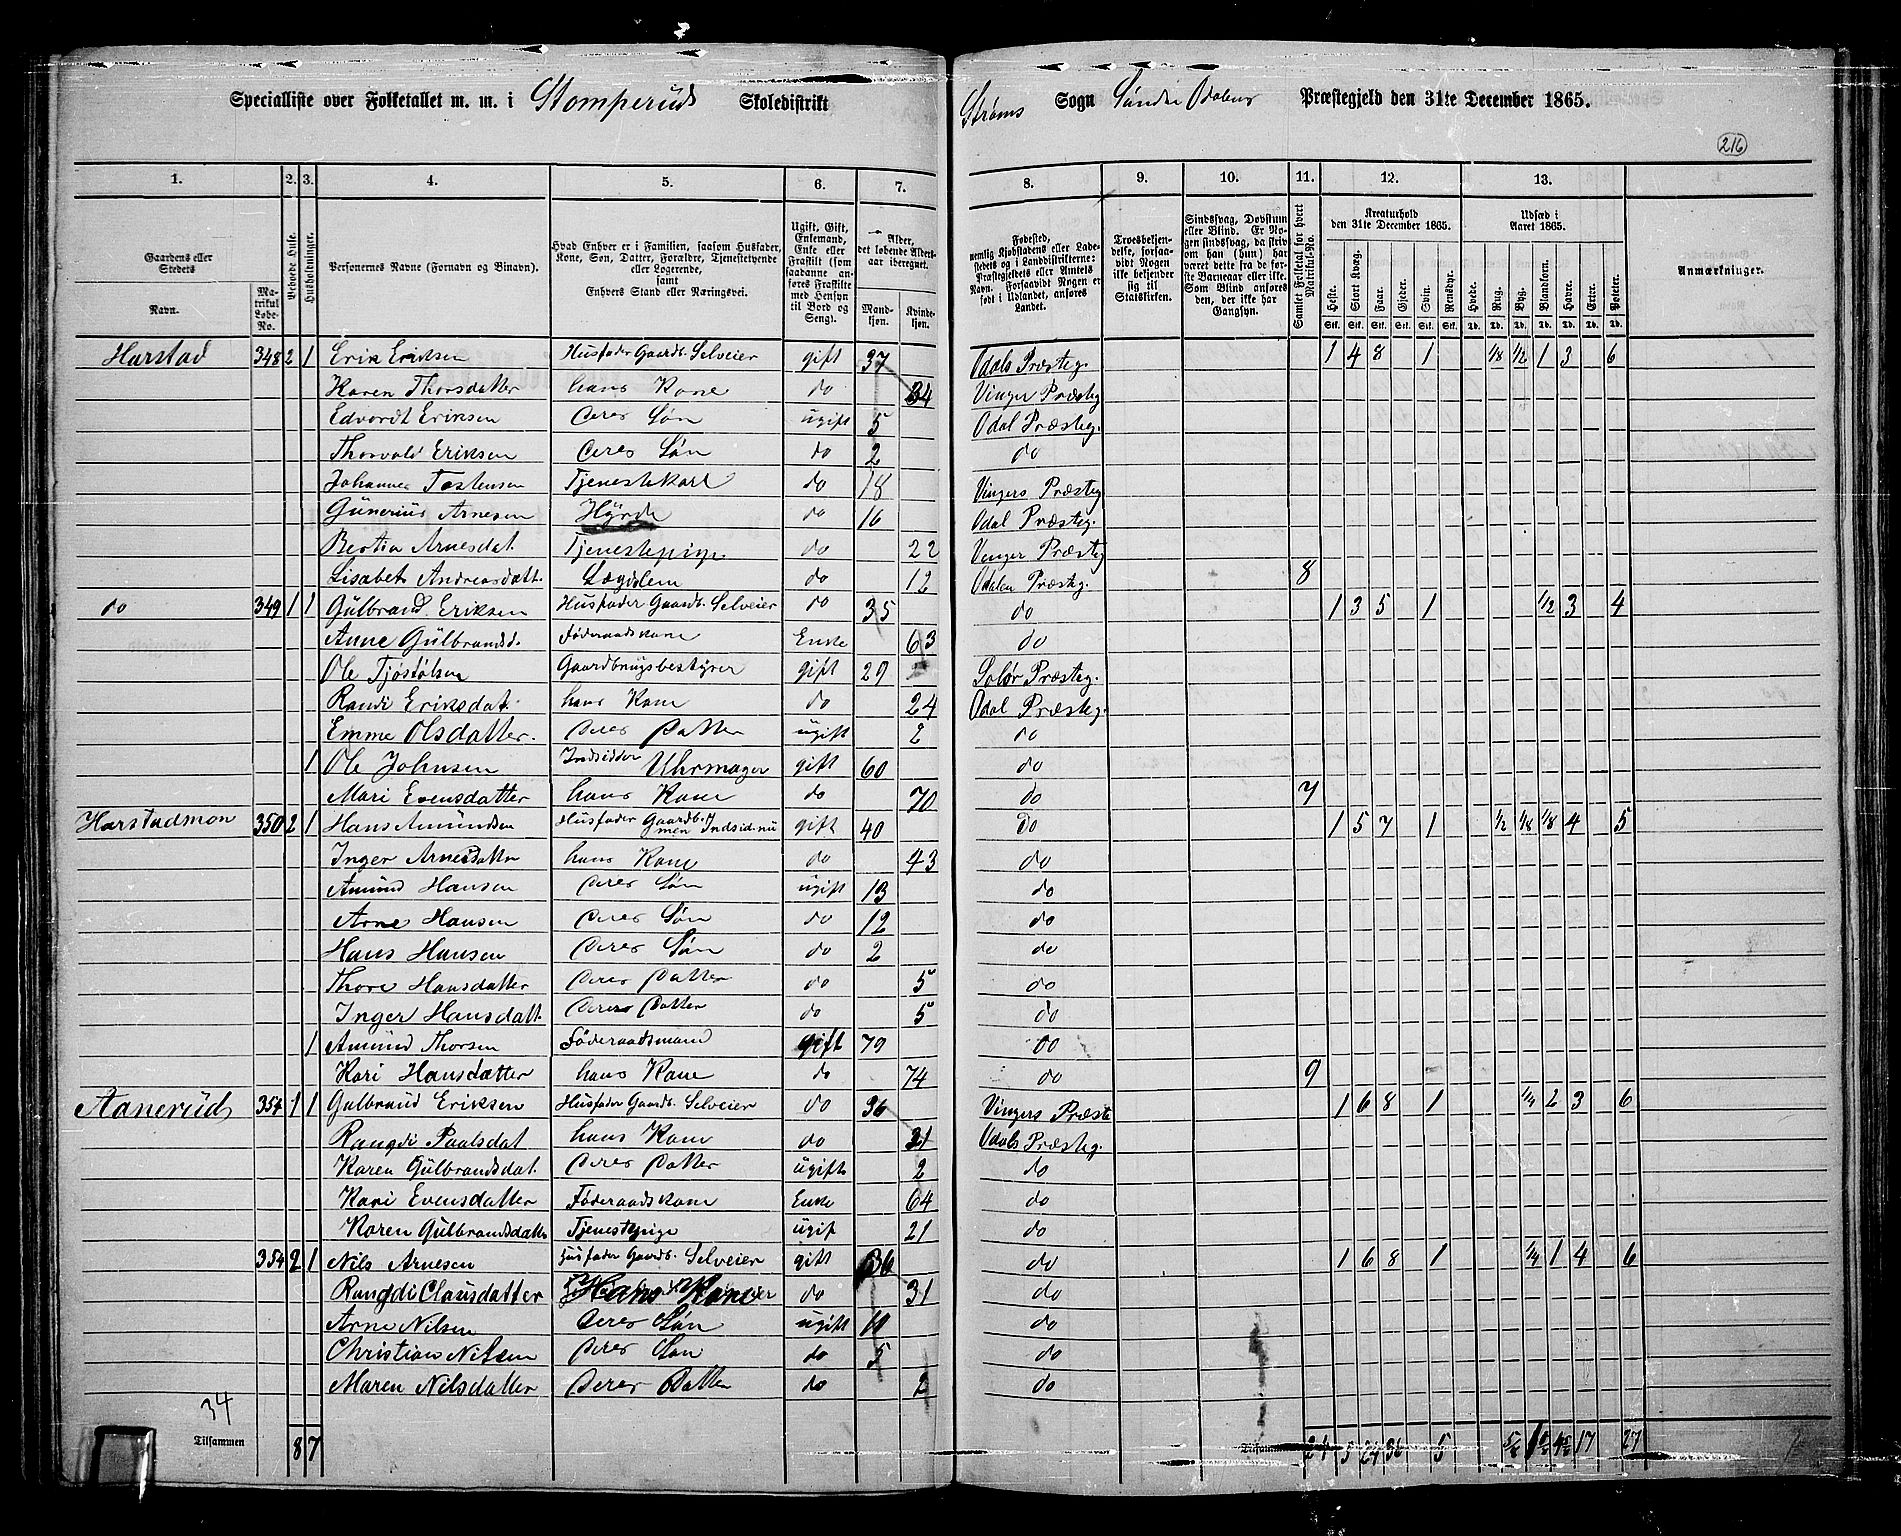 Specialliste over Folketallet m. m. i Stomperud Skoledistrikt Strøms Sogn Søndre Odalens Præstegjeld den 31te December 1865.
216
1. 2. 3. 4. 5. 6. 7. 8. 9. 10. 11. 12. 13.
Gaardens eller Stedets Navn. Matrikul Løbe-No. Beboede Huse. Husholdninger. Personernes Navne (Fornavn og Binavn). Hvad Enhver er i Familien, saasom Husfader, Kone, Søn, Datter, Forældre, Tjenestetyende eller Logerende, samt Enhvers Stand eller Næringsvei. Ugift, Gift, Enkemand, Enke eller Fraskilt (som saadanne anføres Fraskilte med Hensyn til Bord og Seng). Alder, det løbende Alders-aar iberegnet. Mandkjøn. Kvindekjøn. Fødested, nemlig Kjøbstadens eller Ladestedets eller i Landdistrikterne: Præstegjeldets eller Amtets Navn. Forsaavidt Nogen er født i Udlandet, anføres Landet. Troesbekjendelse, forsaavidt Nogen ikke bekjender sig til Statskirken. Sindssvag, Døvstum eller Blind. Er Nogen sindssvag, da skriv om han (hun) har været dette fra de første Barneaar eller ikke. Som Blind anføres den, der ikke har Gangsyn. Samlet Folketal for hvert Matrikul-No. Kreaturhold den 31te December 1865. Heste. Stort Kvæg. Faar. Gjeder. Svin. Rensdyr. Udsæd i Aaret 1865. Hvede. Rug. Byg. Blandkorn. Havre. Erter. Poteter. Anmærkninger.
Harstad 348 2 1 Erik Eriksen Husfader Gaardb. Selveier gift 37 Odals Præsteg. 1 4 8 1 1/8 1/2 1 3 6
Karen Thorsdatter hans Kone do 34 Vinger Præsteg
Edvardt Eriksen Deres Søn ugift 5 Odal Præsteg.
Thorvald Eriksen Deres Søn do 2 do
Johannes Tostensen Tjenestekarl do 18 Vingers Præsteg
Gunerius Arnesen Hyrde do 16 Odal Præsteg.
Bertia Arnesdat. Tjenestepige do 22 Vinger Præsteg
Lisabet Andreasdatt. Lægdlem do 12 Odalen Præsteg. 8
do 349 1 1 Gulbrand Eriksen Husfader Gaardb. Selveier do 35 do 1 3 5 1 1/2 3 4
Anne Gulbrandsd. Føderaadskone Enke 63 do
Ole Tjøstolsen Gaardbrugsbestyrer gift 29 Solør Præsteg.
Randi Eriksdat. hans Kone do 24 Odal Præsteg.
Emme Olsdatter. Deres Datter ugift 2 do
1 Ole Johnsen Indsidder Uhrmager gift 60 do
Mari Evensdatter hans Kone do 70 do 7
Harstadmon 350 2 1 Hans Amundsen Husfader Gaardb. gift 40 do 1 5 7 1 1/2 1/8 1/8 4 5
Inger Arnesdatter hans Kone do 43 do
Amund Hansen Deres Søn ugift 13 do
Arne Hansen Deres Søn do 12 do
Hans Hansen Deres Søn do 2 do
Thore Hansdatter Deres Datter do 5 do
Inger Hansdatt. Deres Datter do 5 do
1 Amund Thorsen Føderaadsmand gift 79 do
Kari Hansdatter hans Kone do 74 do 9
Aanerud 354 1 1 Gulbrand Eriksen Husfader Gaardb. Selveier do 36 Vingers Præste 1 6 8 1 1/4 2 3 6
Rangdi Paalsdat hans Kone do 31 Odals Præsteg.
Karen Gulbrandsdat. Deres Datter ugift 2 do
Kari Evensdatter Føderaadskone Enke 64 do
Karen Gulbrandsdatter Tjenestepige ugift 21 do
354 2 1 Nils Arnesen Husfader Gaardb. Selveier gift 36 do 1 6 8 1 1/4 1 4 6
Rangdi Clausdatter Hans Kone do 31 do
Arne Nilsen Deres Søn ugift do
Christian Nilsen Deres Søn do 5 do
Maren Nilsdatter Deres Datter do 2 do
34
Tilsammen 8 7 Tilsammen 24 5 24 36 5 17 27